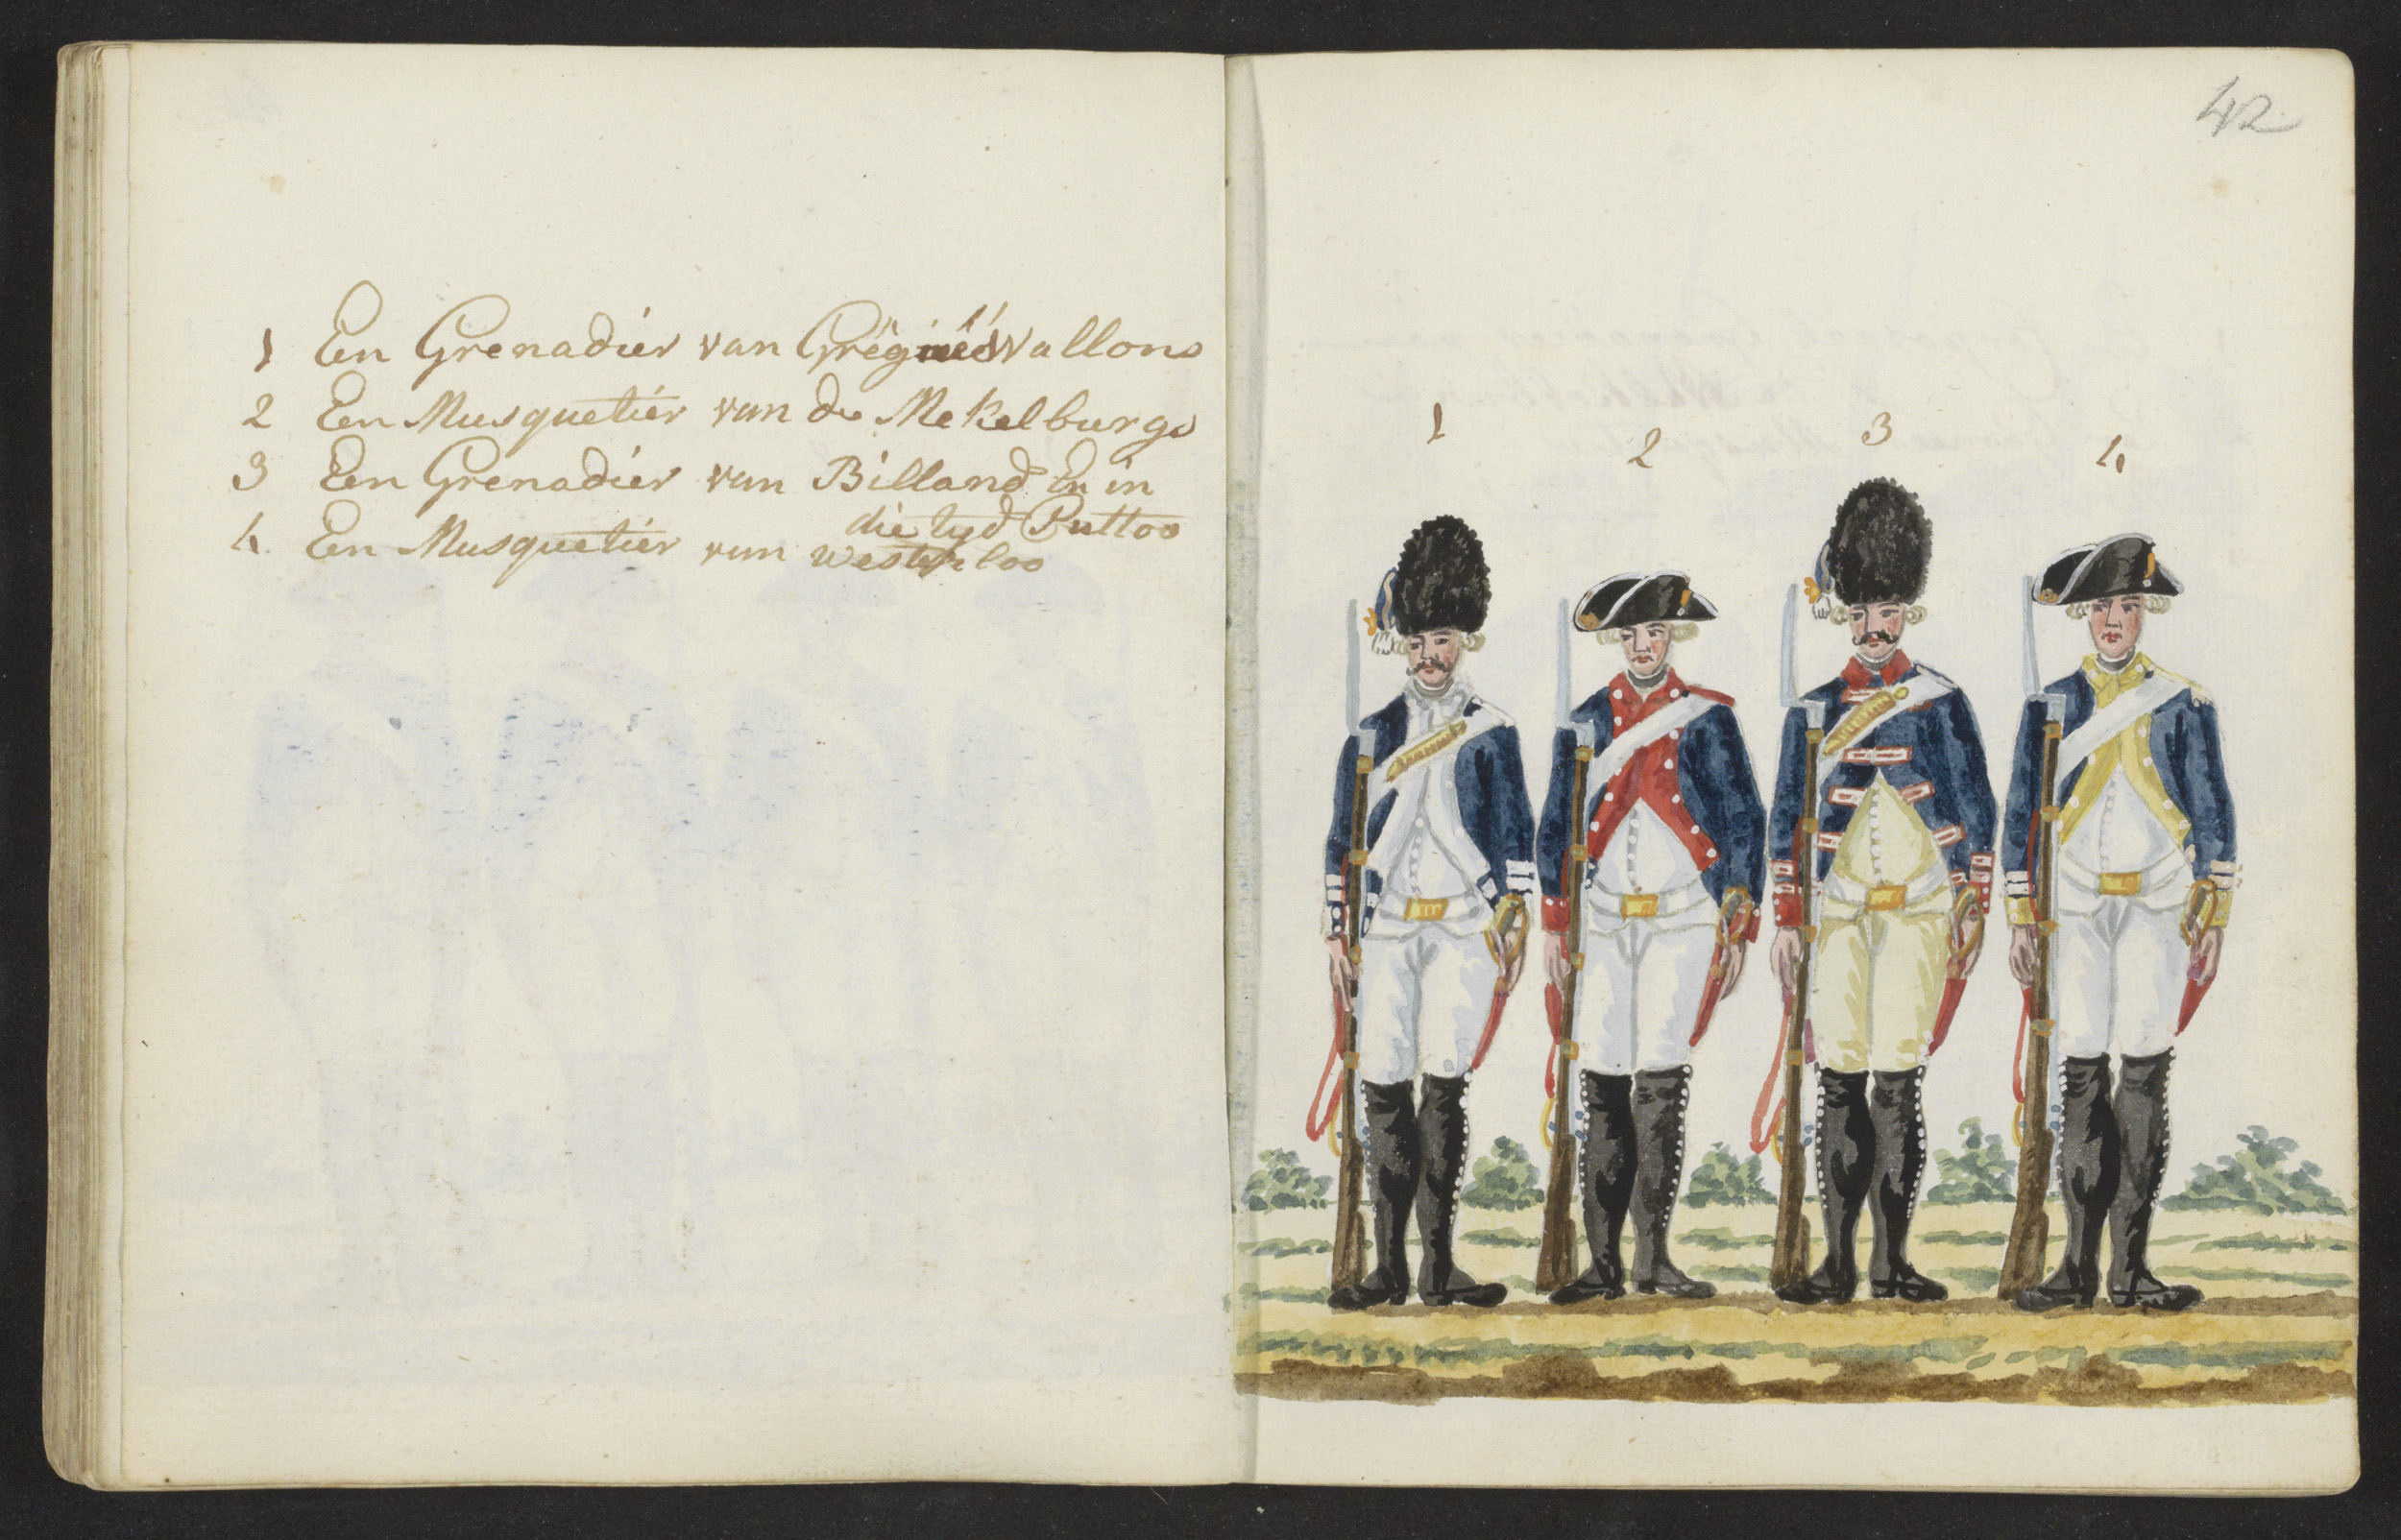 1 Een Grenadier van Wallons
2 Een Musquetier van de Mekelburgs
3 Een Grenadier van Billand En in
die tyd Puttoo
4. Een Musquetier van Westerloo
42
1
2
3
4